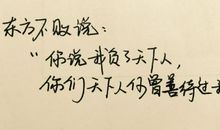 东方不败说：
“你说我负了天下人，
你们天下人何曾善待过我